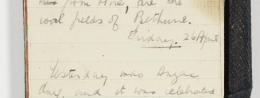 from Home, are the
coal fields of Bethune.
Friday. 26 April
Yesterday was Anzac
day, and it was celebrated